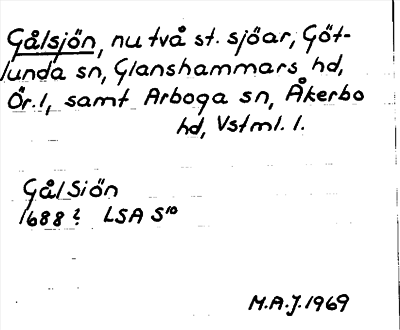 Gålsjön, nu två st. sjöar, Göt-
lunda sn, Glanshammars hd,
Ör. l, samt Arboga sn, Åkerbo
hd, Vstml. l.
GålSiön
1688? LSA S¹⁰
M.A.J. 1969